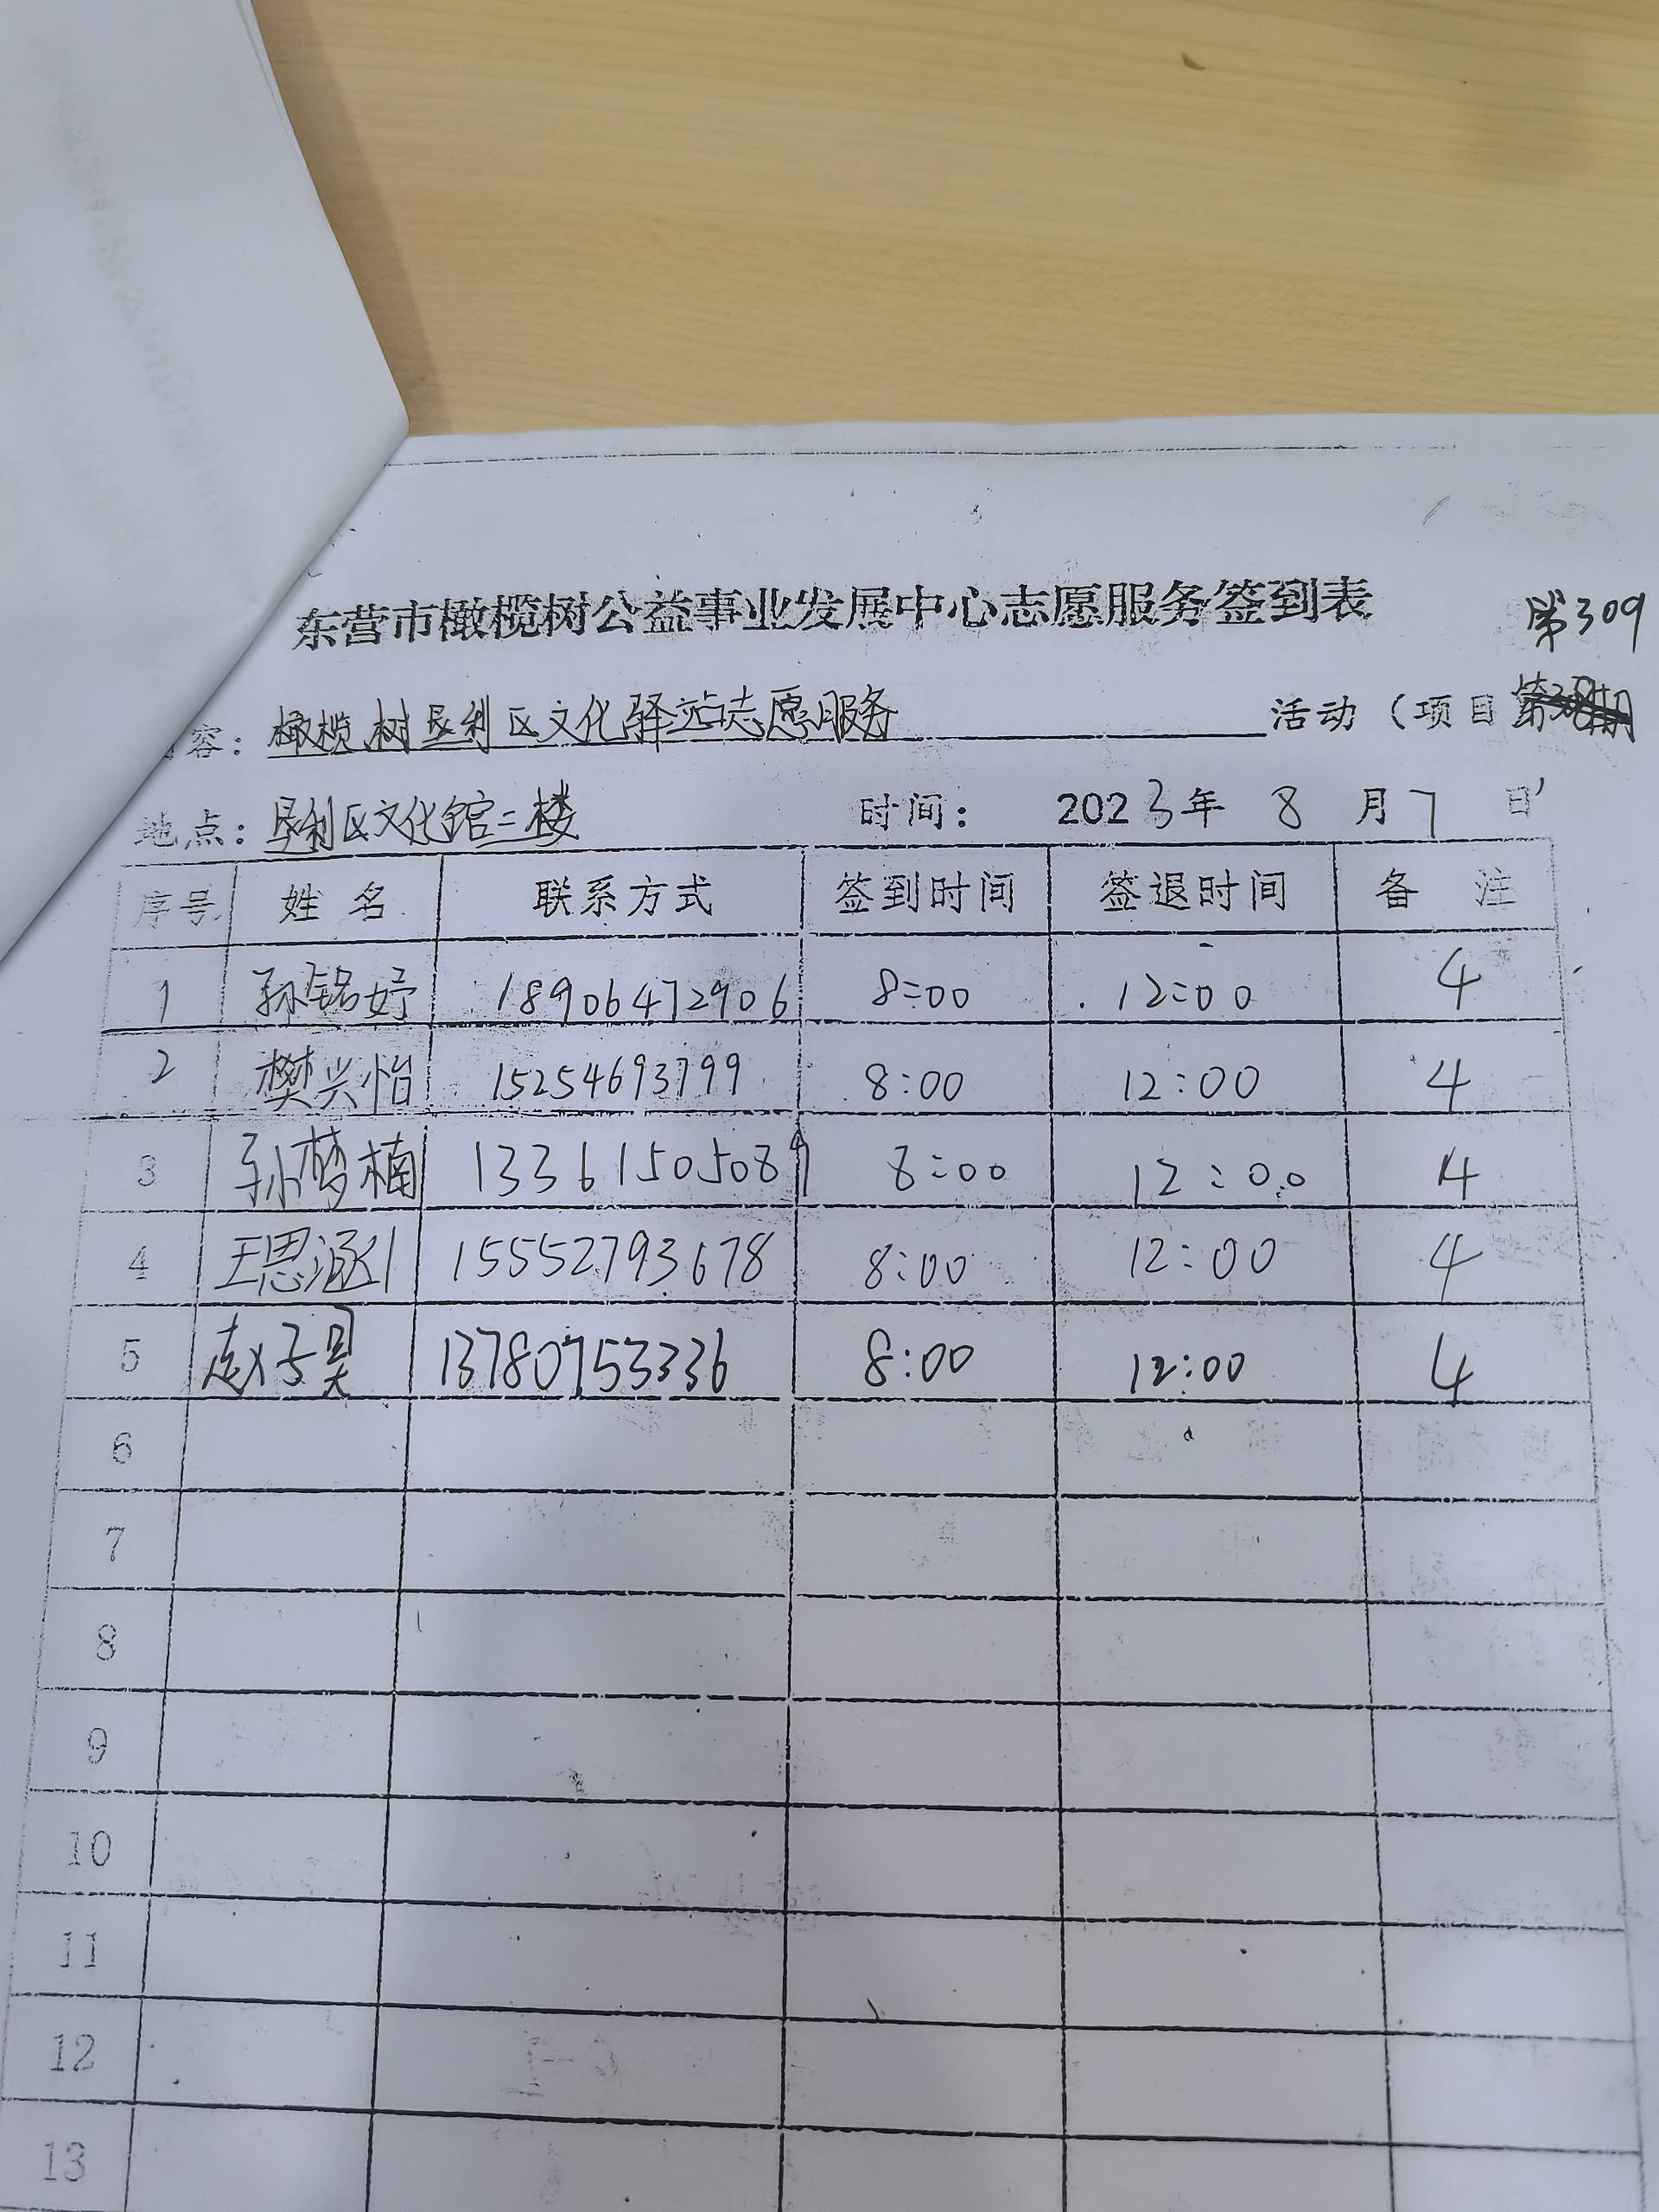 东营市橄榄树公益事业发展中心志愿服务签到表 第309
容：橄榄树垦利区文化驿站志愿服务 活动（项目
地点：垦利区文化馆二楼 时间： 2023年 8 月 7 日
序号 姓 名 联系方式 签到时间 签退时间 备 注
1 孙铭妤 18906472906 8:00 12:00 4
2 樊兴怡 15254693799 8:00 12:00 4
3 孙梦楠 13361505089 8:00 12:00 4
4 王思涵 15552793678 8:00 12:00 4
5 赵子昊 13780753336 8:00 12:00 4
6
7
8
9
10
11
12
13